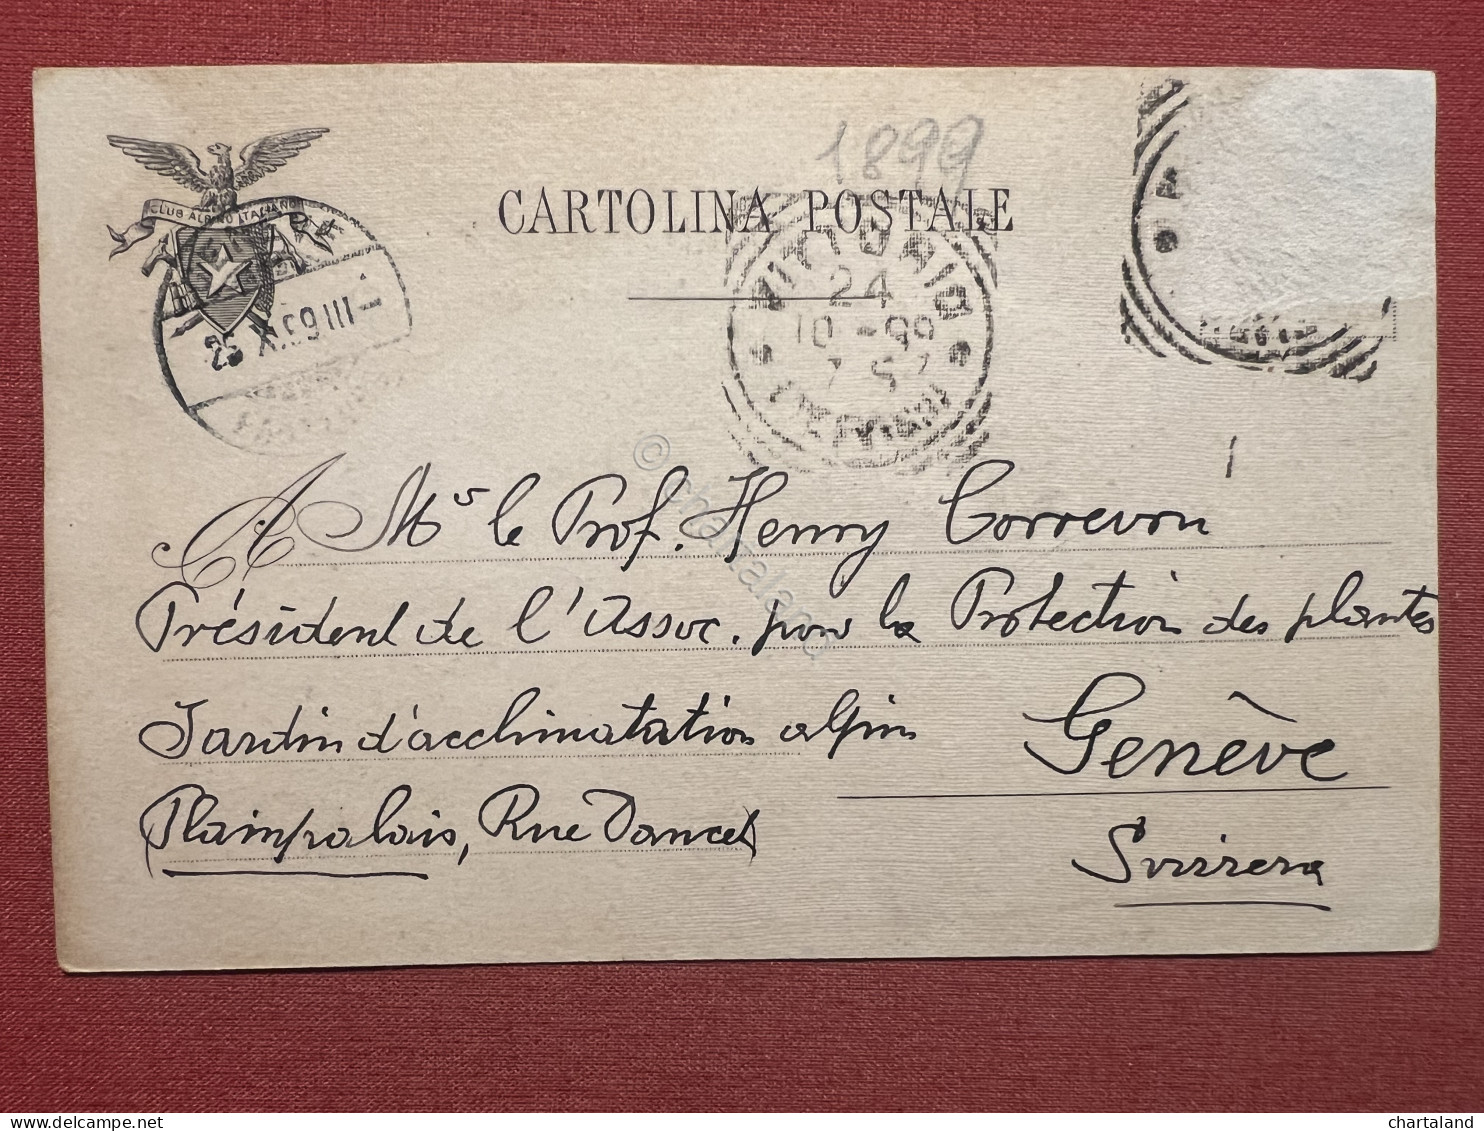 1899
CLUB ALPINO ITALIANO
CARTOLINA POSTALE
VITTORIO
24
10-99
7 S
25.X.99 III
A Mr le Prof. Henry Correvon
Président de l'Assoc. pour la Protection des plantes
Jardin d'acclimatation alpin
Genève
(Plainpalais, Rue Dancet)
Svizzera
© chartaland
chartaland